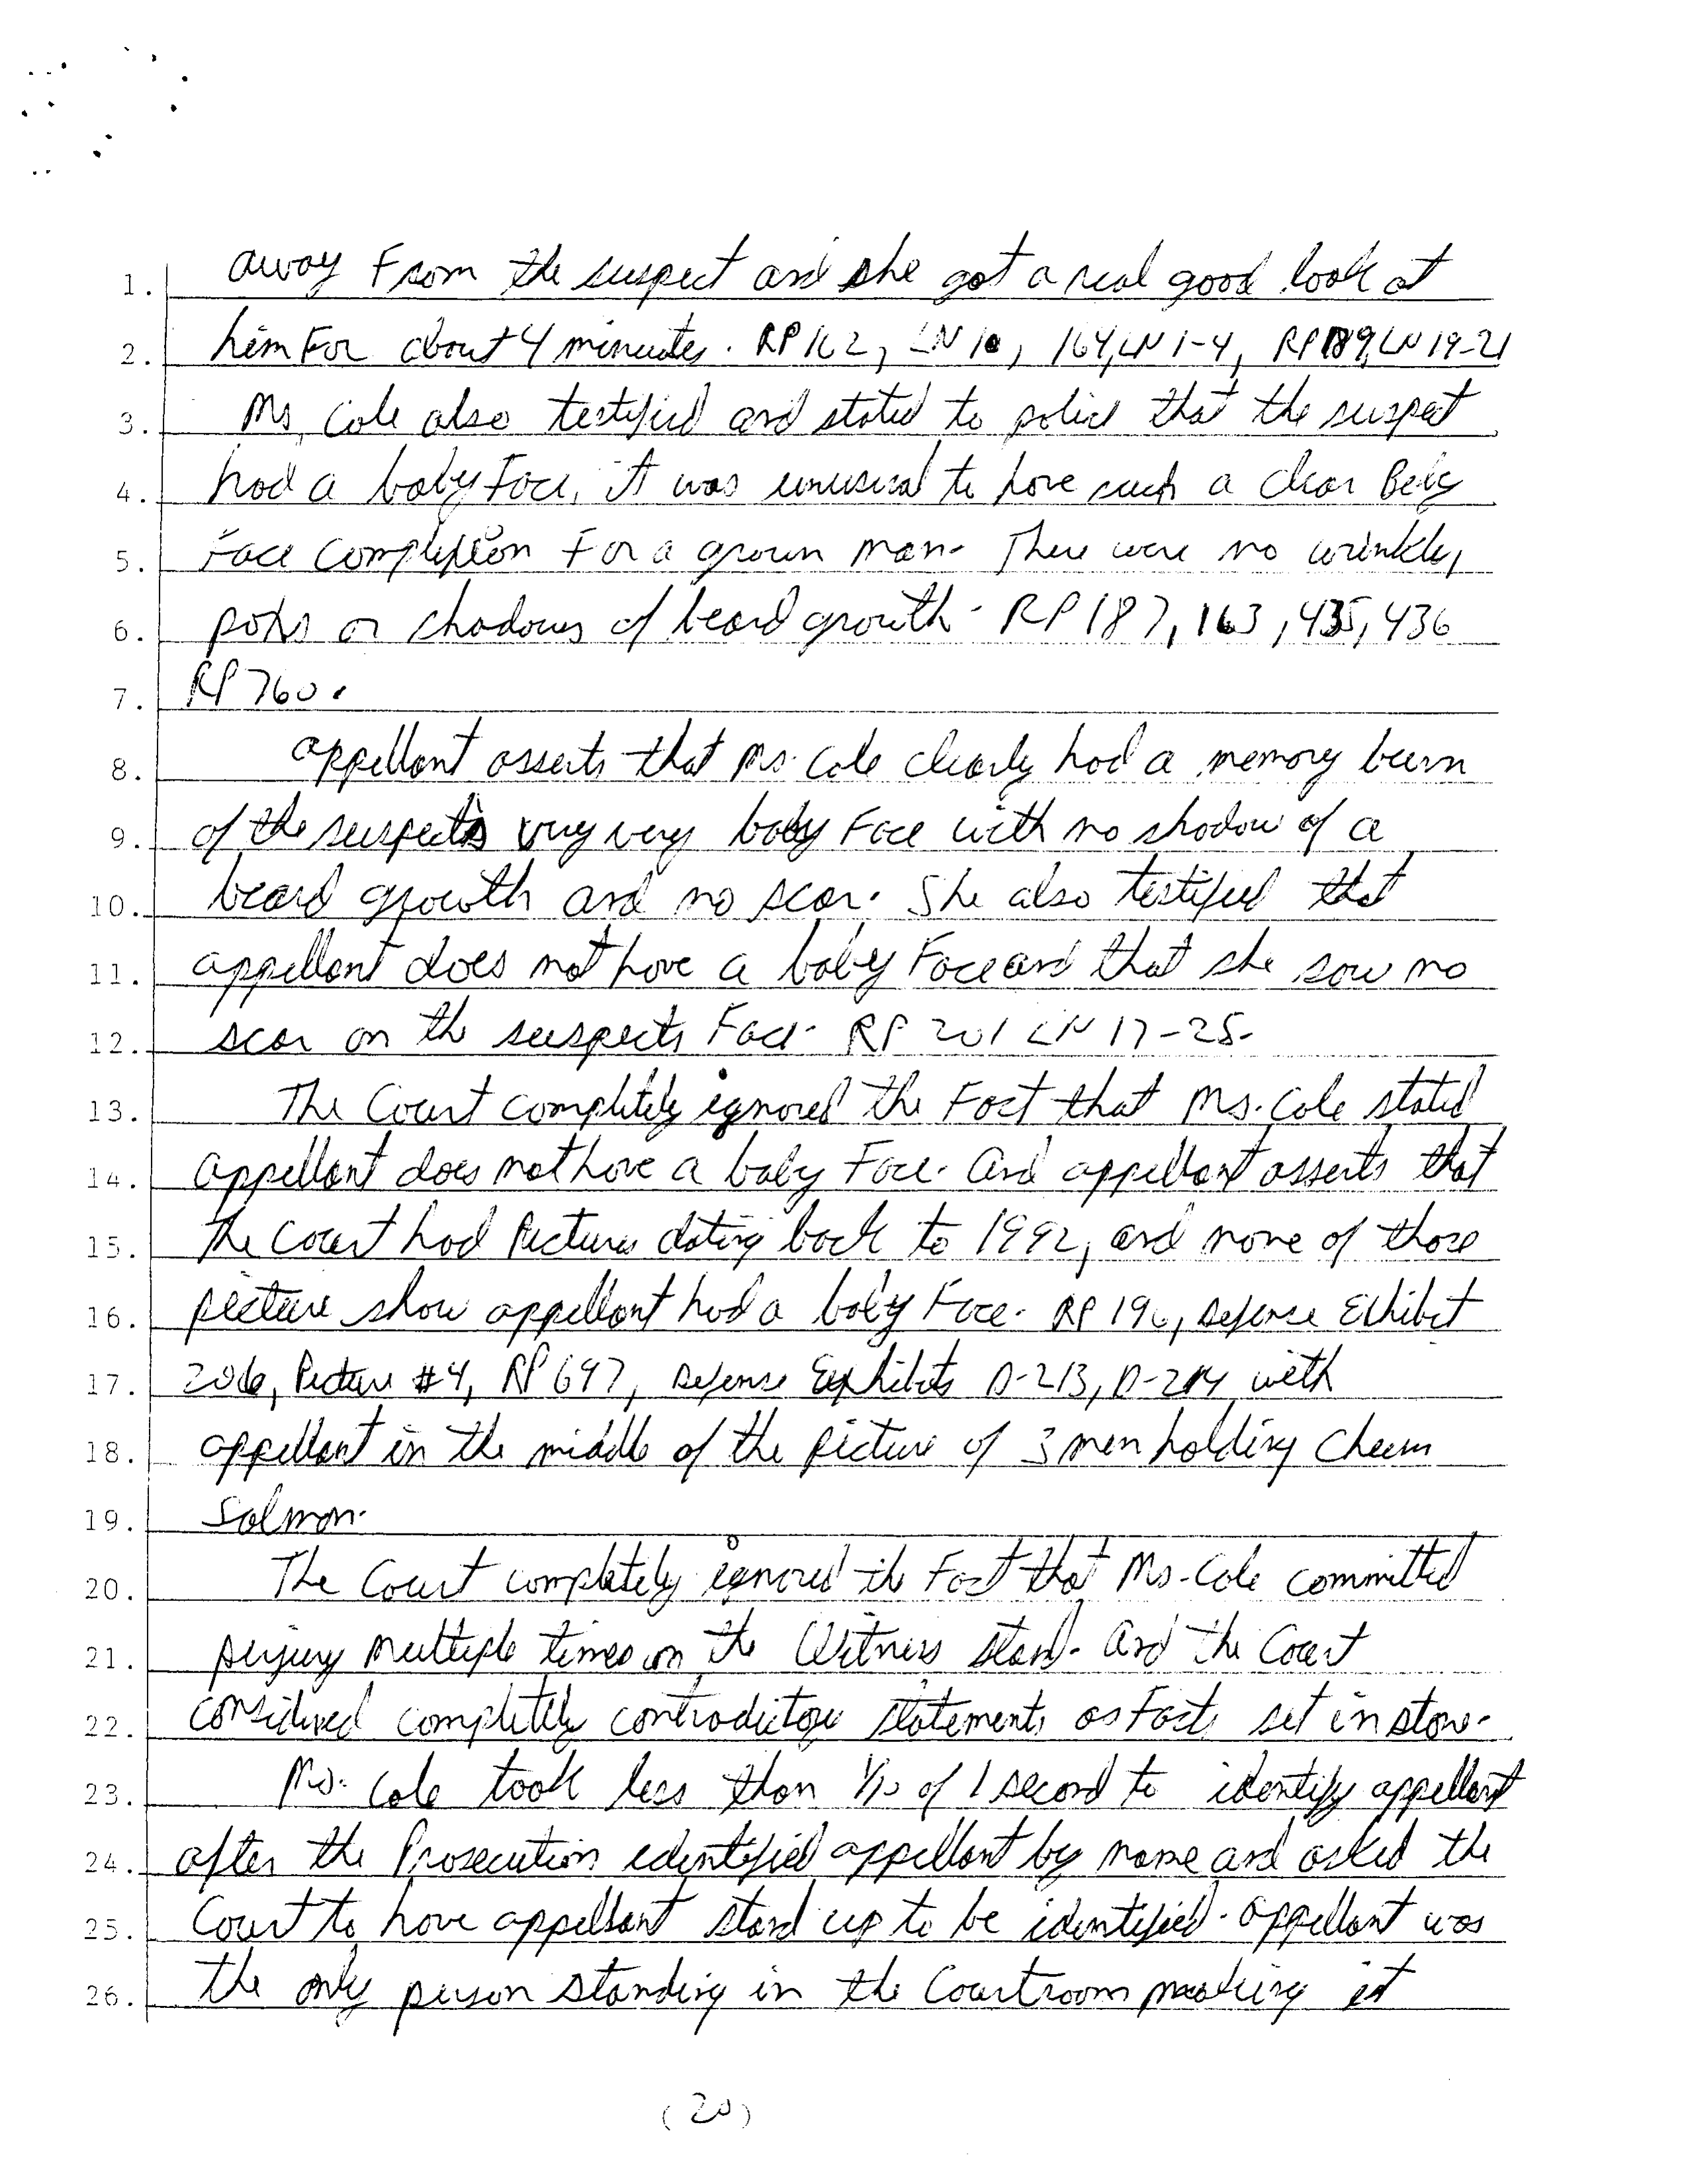 1. away From the suspect and she got a real good look at
2. him For about 4 minutes. RP 162, LN 10, 164, LN 1-4, RP 189, LN 19-21
3. Ms. Cole also testified and stated to police that the suspect
4. had a baby Face, it was unusual to have such a clear Baby
5. Face Complexion For a grown man. There were no wrinkles,
6. or shadows of beard growth. RP 187, 163, 435, 436
7. RP 760.
8. appellant asserts that Ms. Cole clearly had a memory burn
9. of the suspects very very baby Face with no shadow of a
10. beard growth and no scar. She also testified that
11. appellant does not have a baby Face and that she saw no
12. scar on the suspects Face. RP 201 LN 17-25.
13. The Court completely ignored the Fact that Ms. Cole stated
14. appellant does not have a baby Face. And appellant asserts that
15. the Court had Pictures dating back to 1992, and none of those
16. picture show appellant had a baby Face. RP 196, Defense Exhibit
17. 206, Picture #4, RP 697, Defense Exhibits D-213, D-214 with
18. appellant in the middle of the Picture of 3 men holding Chum
19. Salmon.
20. The Court completely ignored the Fact that Ms. Cole committed
21. perjury Multiple times on the Witness stand. And the Court
22. considered completely contradictory statements as Facts set in stone.
23. Ms. Cole took less than 1/10 of 1 second to identify appellant
24. after the Prosecution identified appellant by name and asked the
25. Court to have appellant stand up to be identified. appellant was
26. the only person standing in the Courtroom making it
(20)